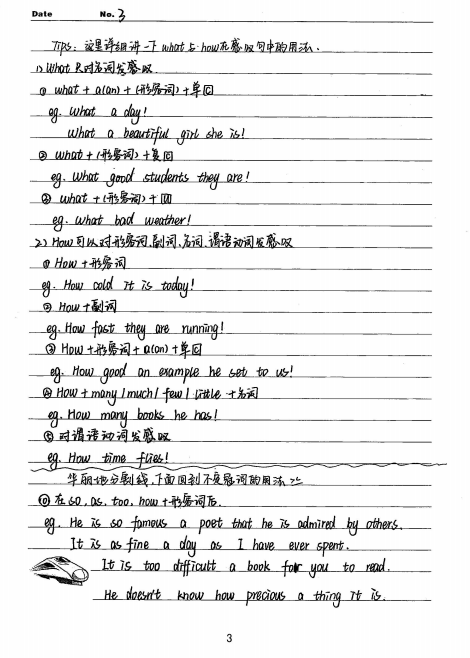 Date No. 3
Tips: 这里详细讲一下 what 与 how在感叹句中的用法.
1) What 只对名词发感叹.
① what + a(an) + (形容词) + 单可
eg. what a day!
what a beautiful girl she is!
② what + (形容词) + 复可
eg. What good students they are!
③ what + (形容词) + 不可
eg. what bad weather!
2) How可以对形容词、副词、名词、谓语动词发感叹
① How + 形容词
eg. How cold it is today!
② How + 副词
eg. How fast they are running!
③ How + 形容词 + a(an) + 单可
eg. How good an example he set to us!
④ How + many / much / few / little + 名词
eg. How many books he has!
⑤ 对谓语动词发感叹
eg. How time flies!
华丽地分割线,下面回到不定冠词的用法
⑩ 在so, as, too, how + 形容词后.
eg. He is so famous a poet that he is admired by others.
It is as fine a day as I have ever spent.
It is too difficult a book for you to read.
He doesn't know how precious a thing it is.
3